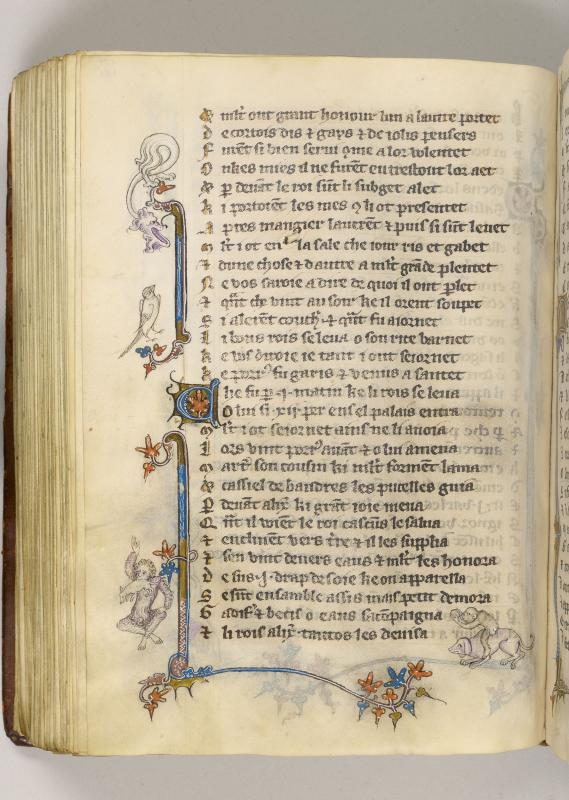 mlt ont grant honour lun a lautre portet
D e cortois dis & gays & de iolis pensers
F urent si bien serui qme a lor volentet
O nkes mies il ne furent en trestout lor aet
& p deuāt le roi sūt li subget alet
k i portoient les mes q li ot presentet
A pres mangier lauerēt & puis si sūt leuet
lt i ot en la sale che iour ris et gabet
& dune chose & dautre a mlt grāde plentet
N e vos saroie a dire de quoi il ont plet
& qūt che vint au soir ke il orent soupet
S i alerēt couch & qūt fu aiornet
L i bons rois se leua o son rice barnet
k e ie tant i ont seiornet
k e porr fu garis & venus a santet
C he fu p .i. matin ke li rois se leua
O lui si .xij. per ens el palais entra
lt i ot seiornet ains ne li anoia
L ors vint porr auāt & o lui amena
son cousin ki mlt forment lama
& cassiel de baudres les pucelles guia
P deuāt alix ki grāt ioie mena
Q nt il voient le roi cascuns le salua
& enclinent vers tre & il les
& sen vint deuers eaus & mlt les honora
D e sus .i. drap de soie ke on apparella
S e sūt ensamble assis mais petit demora
G adif & betis o eaus sacūpaigna
& li rois alix tantos les deuisa